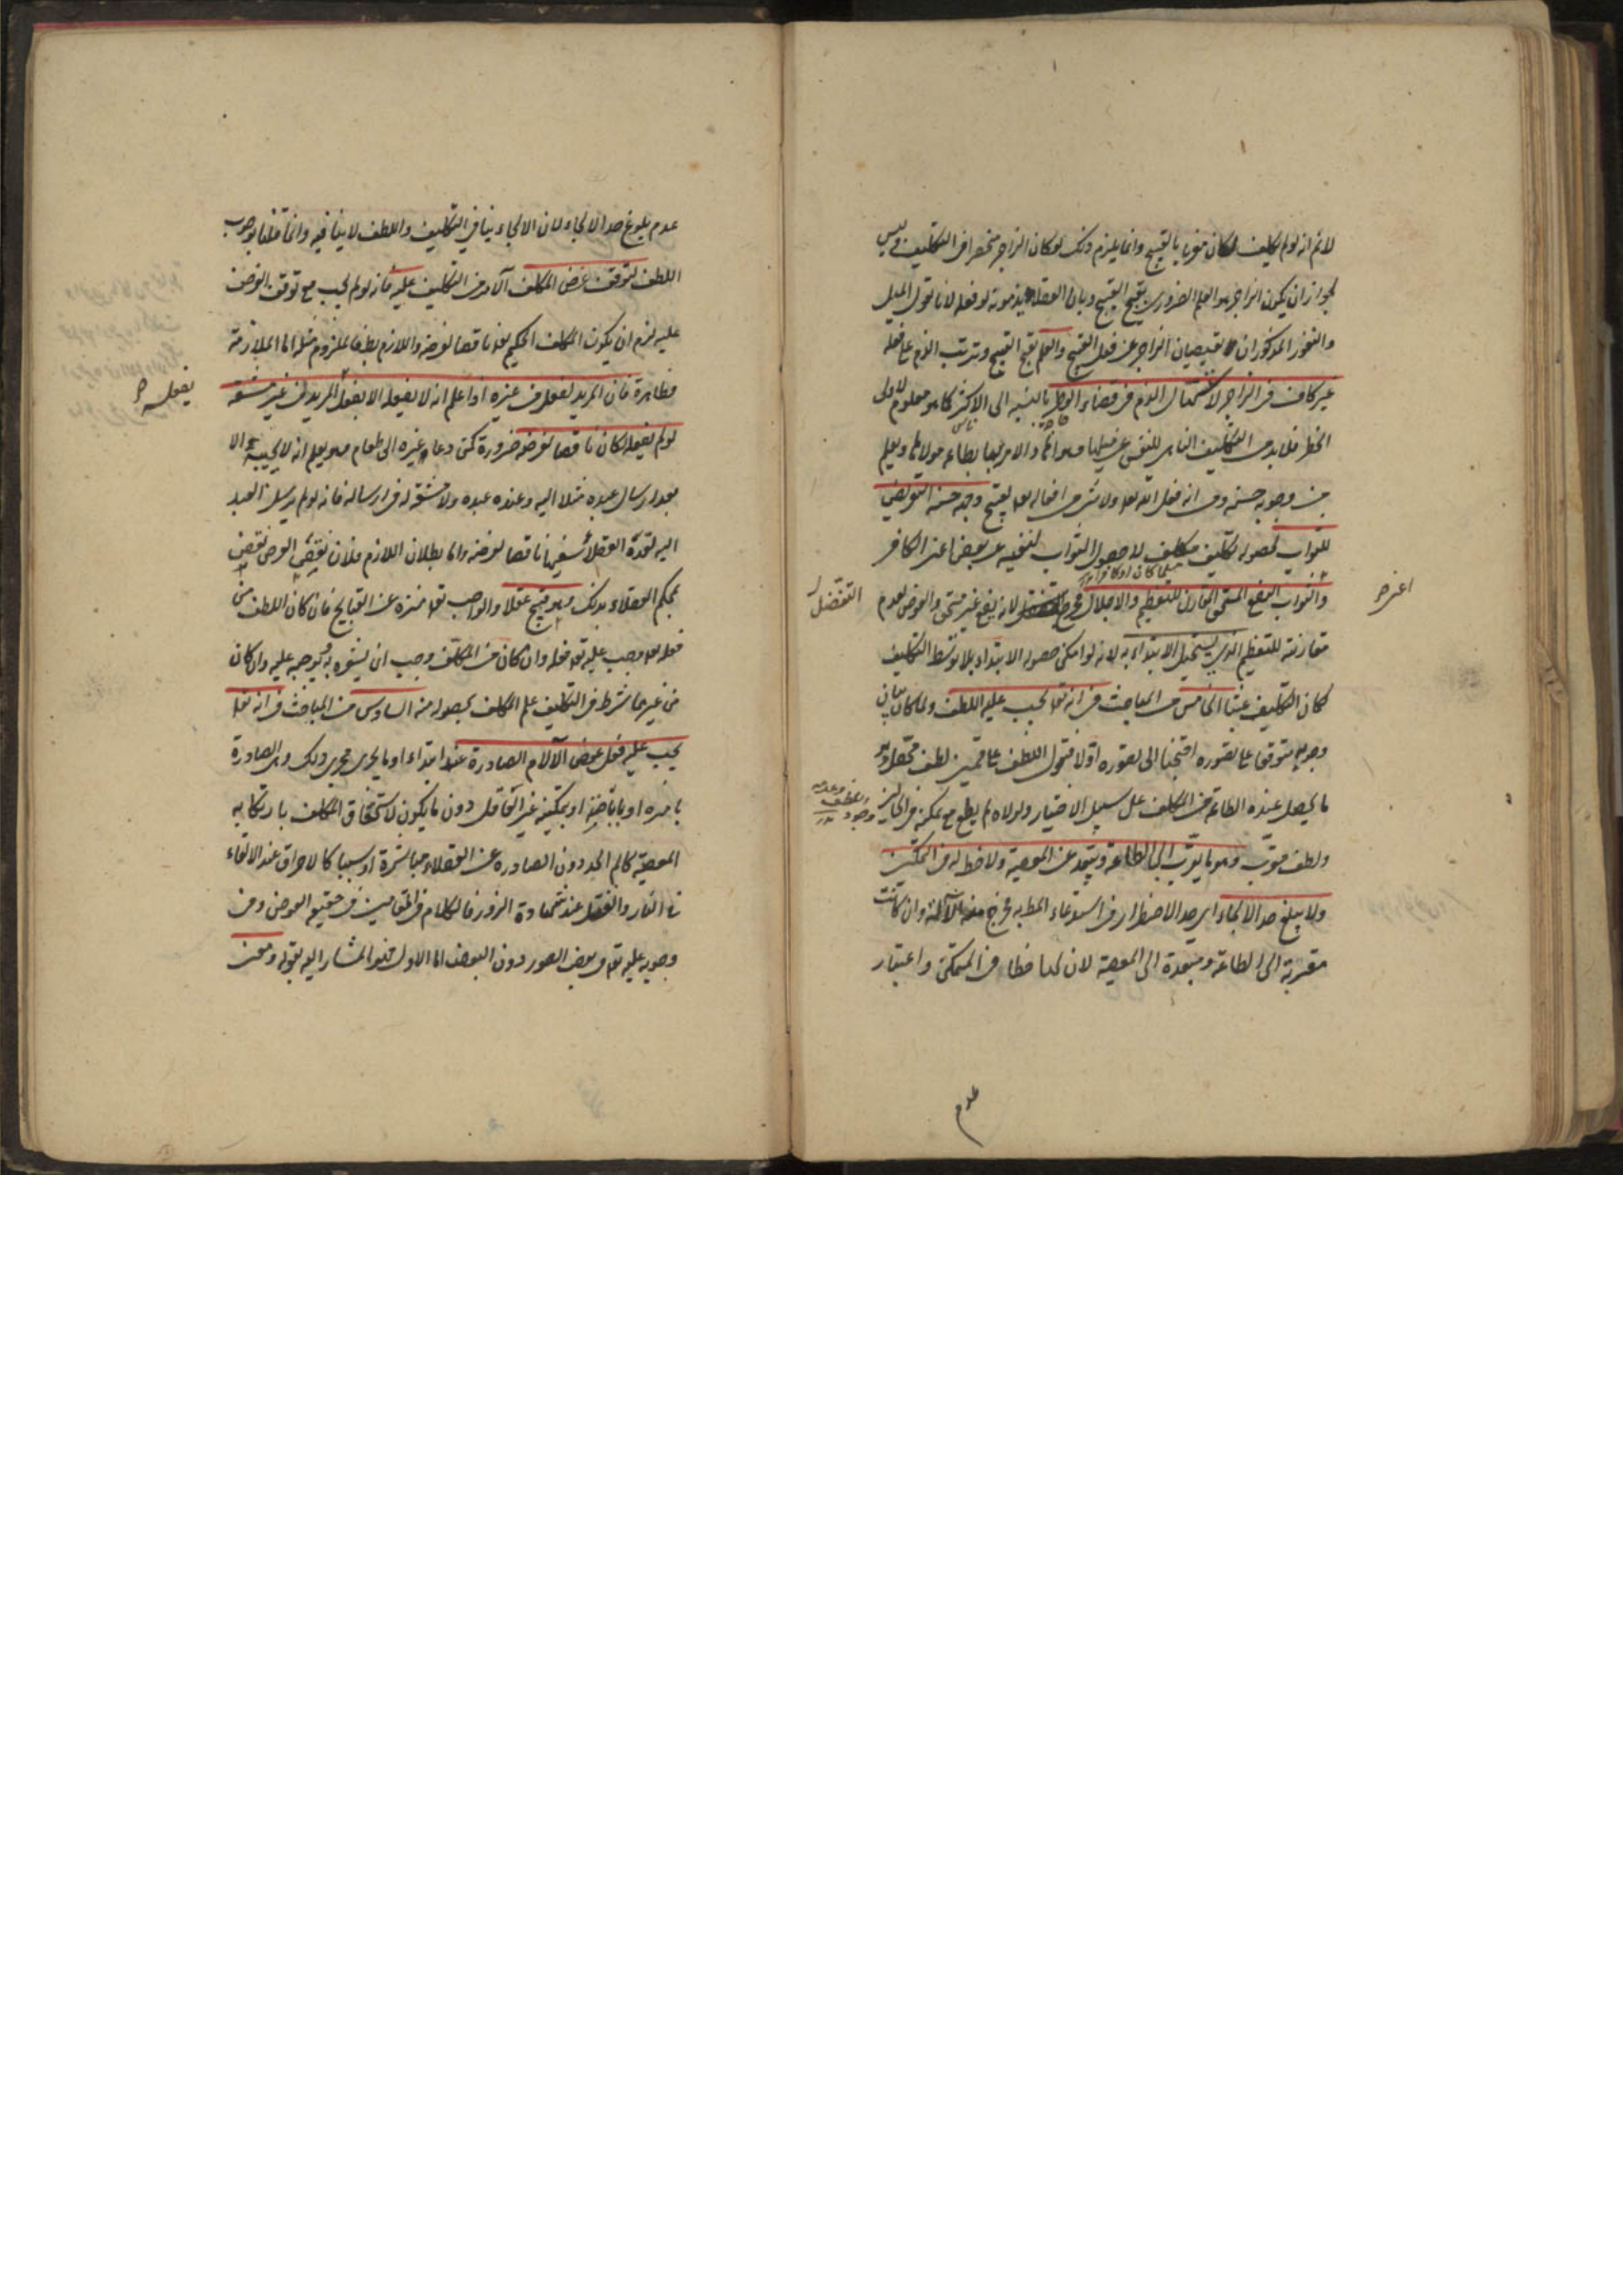 لانم انه لو لم يكلف لكان مغريا بالقبيح وانما يلزم ذلك لو كان الزاجر منحصرا في التكليف وليس
لجواز ان يكون الزاجر هو العلم الضروري بقبح القبيح وبان العقلاء يذمونه لو فعله لانا نقول الميل
والنفور المذكوران يقتضيان الزاجر عن فعل القبيح والعلم بقبح القبيح وترتب الذم على فعله
غير كاف في الزجر لاستسهال الذم في قضاء الوطر بالنسبة الى الاكثر كما هو معلوم لاولى
فلا بد من التكليف الناهي للنفس عن فيها وهواها والامر لها بطاعة مولاها ويعلم
من وجوبه حسنه ومن انه فعل الله تعالى ولا شيء من افعاله تعالى بقبيح وجه حسنه التعريض
للثواب لحصوله لكل مكلف لا حصول الثواب لتخلفه عن بعضنا عند الكافر
مسلما كان او كافرا
والثواب النفع المستحق المقارن للتعظيم والاجلال فخرج لانه نفع غير مستحق والعوض لعدم
التفضل
مقارنته للتعظيم الذي يستحيل الابتداء به لانه لو امكن حصوله الابتداء بلا توسط التكليف
كان التكليف عبثا الخامس من المباحث في انه تعالى يجب عليه اللطف ولما كان بيان
وجوبه متوقفا على تصوره احتجنا الى تصوره اولا فنقول اللطف على قسمين لطف محصل وهو
ما يحصل عنده الطاعة من المكلف على سبيل الاختيار ولولاه لم يطع مع تمكنه في الحالين
ولطف مقرب وهو ما يقرب الى الطاعة ويبعد عن المعصية ولا حظ له في التمكين
ولا يبلغ حد الالجاء اي حد الاضطرار في استدعاء المط به فخرج الآلة وان كانت
مقربة الى الطاعة ومبعدة الى المعصية لان لها حظا في التمكن واعتبار
عدم
عدم بلوغ حد الالجاء لان الالجاء ينافي التكليف واللطف لا ينافيه وانما قلنا بوجوب
اللطف لتوقف غرض المكلف الآمر من التكليف عليه فانه لو لم يجب مع توقف الغرض
عليه لزم ان يكون المكلف الحكيم تعالى ناقضا لغرضه واللازم بط فالملزوم مثله اما الملازمة
فظاهرة فان المريد لفعل من غيره اذا علم انه لا يفعله الا بفعل المريد من غير مشقة
يفعله
لو لم يفعله لكان ناقضا لغرضه ضرورة كمن دعا غيره الى طعام وهو يعلم انه لا يجيبه الا
بعد ارسال عبده مثلا اليه وعنده عبده ولا مشقة له في ارساله فانه لو لم يرسل العبد
اليه لعده العقلاء سفيها ناقضا لغرضه واما بطلان اللازم فلان نقض الغرض نقص
بحكم العقلاء بذلك وهو قبيح عقلا والواجب تعالى منزه عن القبايح فان كان اللطف من
فعله تعالى وجب عليه تعالى فعله وان كان من المكلف وجب ان يشعره به ويوجبه عليه وان كان
من غيرهما شرط في التكليف علم المكلف بحصوله منه السادس من المباحث في انه تعالى
يجب عليه فعل عوض الآلام الصادرة عنه ابتداء او ما يجري مجرى ذلك وهي الصادرة
بامره او باباحته او بتمكينه غير العاقل دون ما يكون لاستحقاق المكلف بارتكابه
المعصية كالم الحد دون الصادرة عن العقلاء مباشرة او سببا كالاحراق عند الالقاء
في النار والقتل عند شهادة الزور فالكلام في المقامين في حقيقة العوض وفي
وجوبه عليه تعالى في بعض الصور دون البعض اما الاول فهو المشار اليه بقوله ومعنى